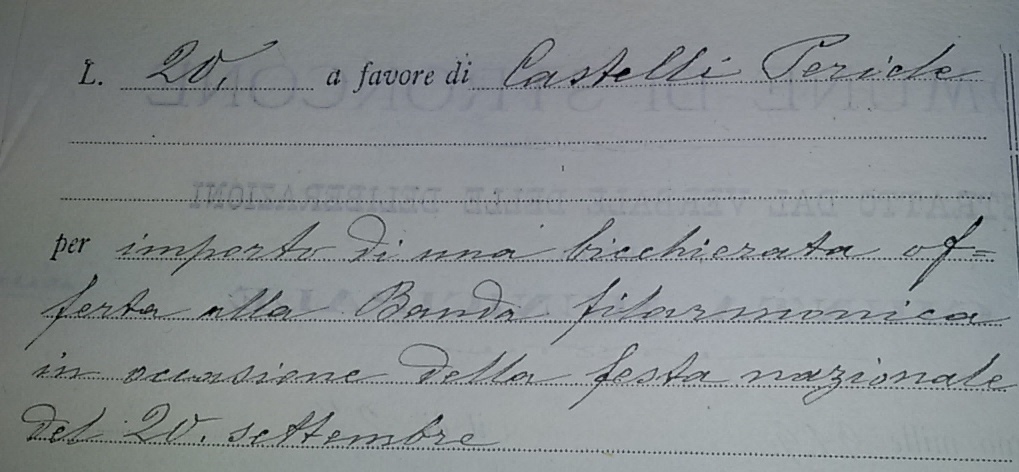 L. 20, a favore di Castelli Pericle
per importo di una bicchierata of=
ferta alla Banda filarmonica
in occasione della festa nazionale
del 20. settembre